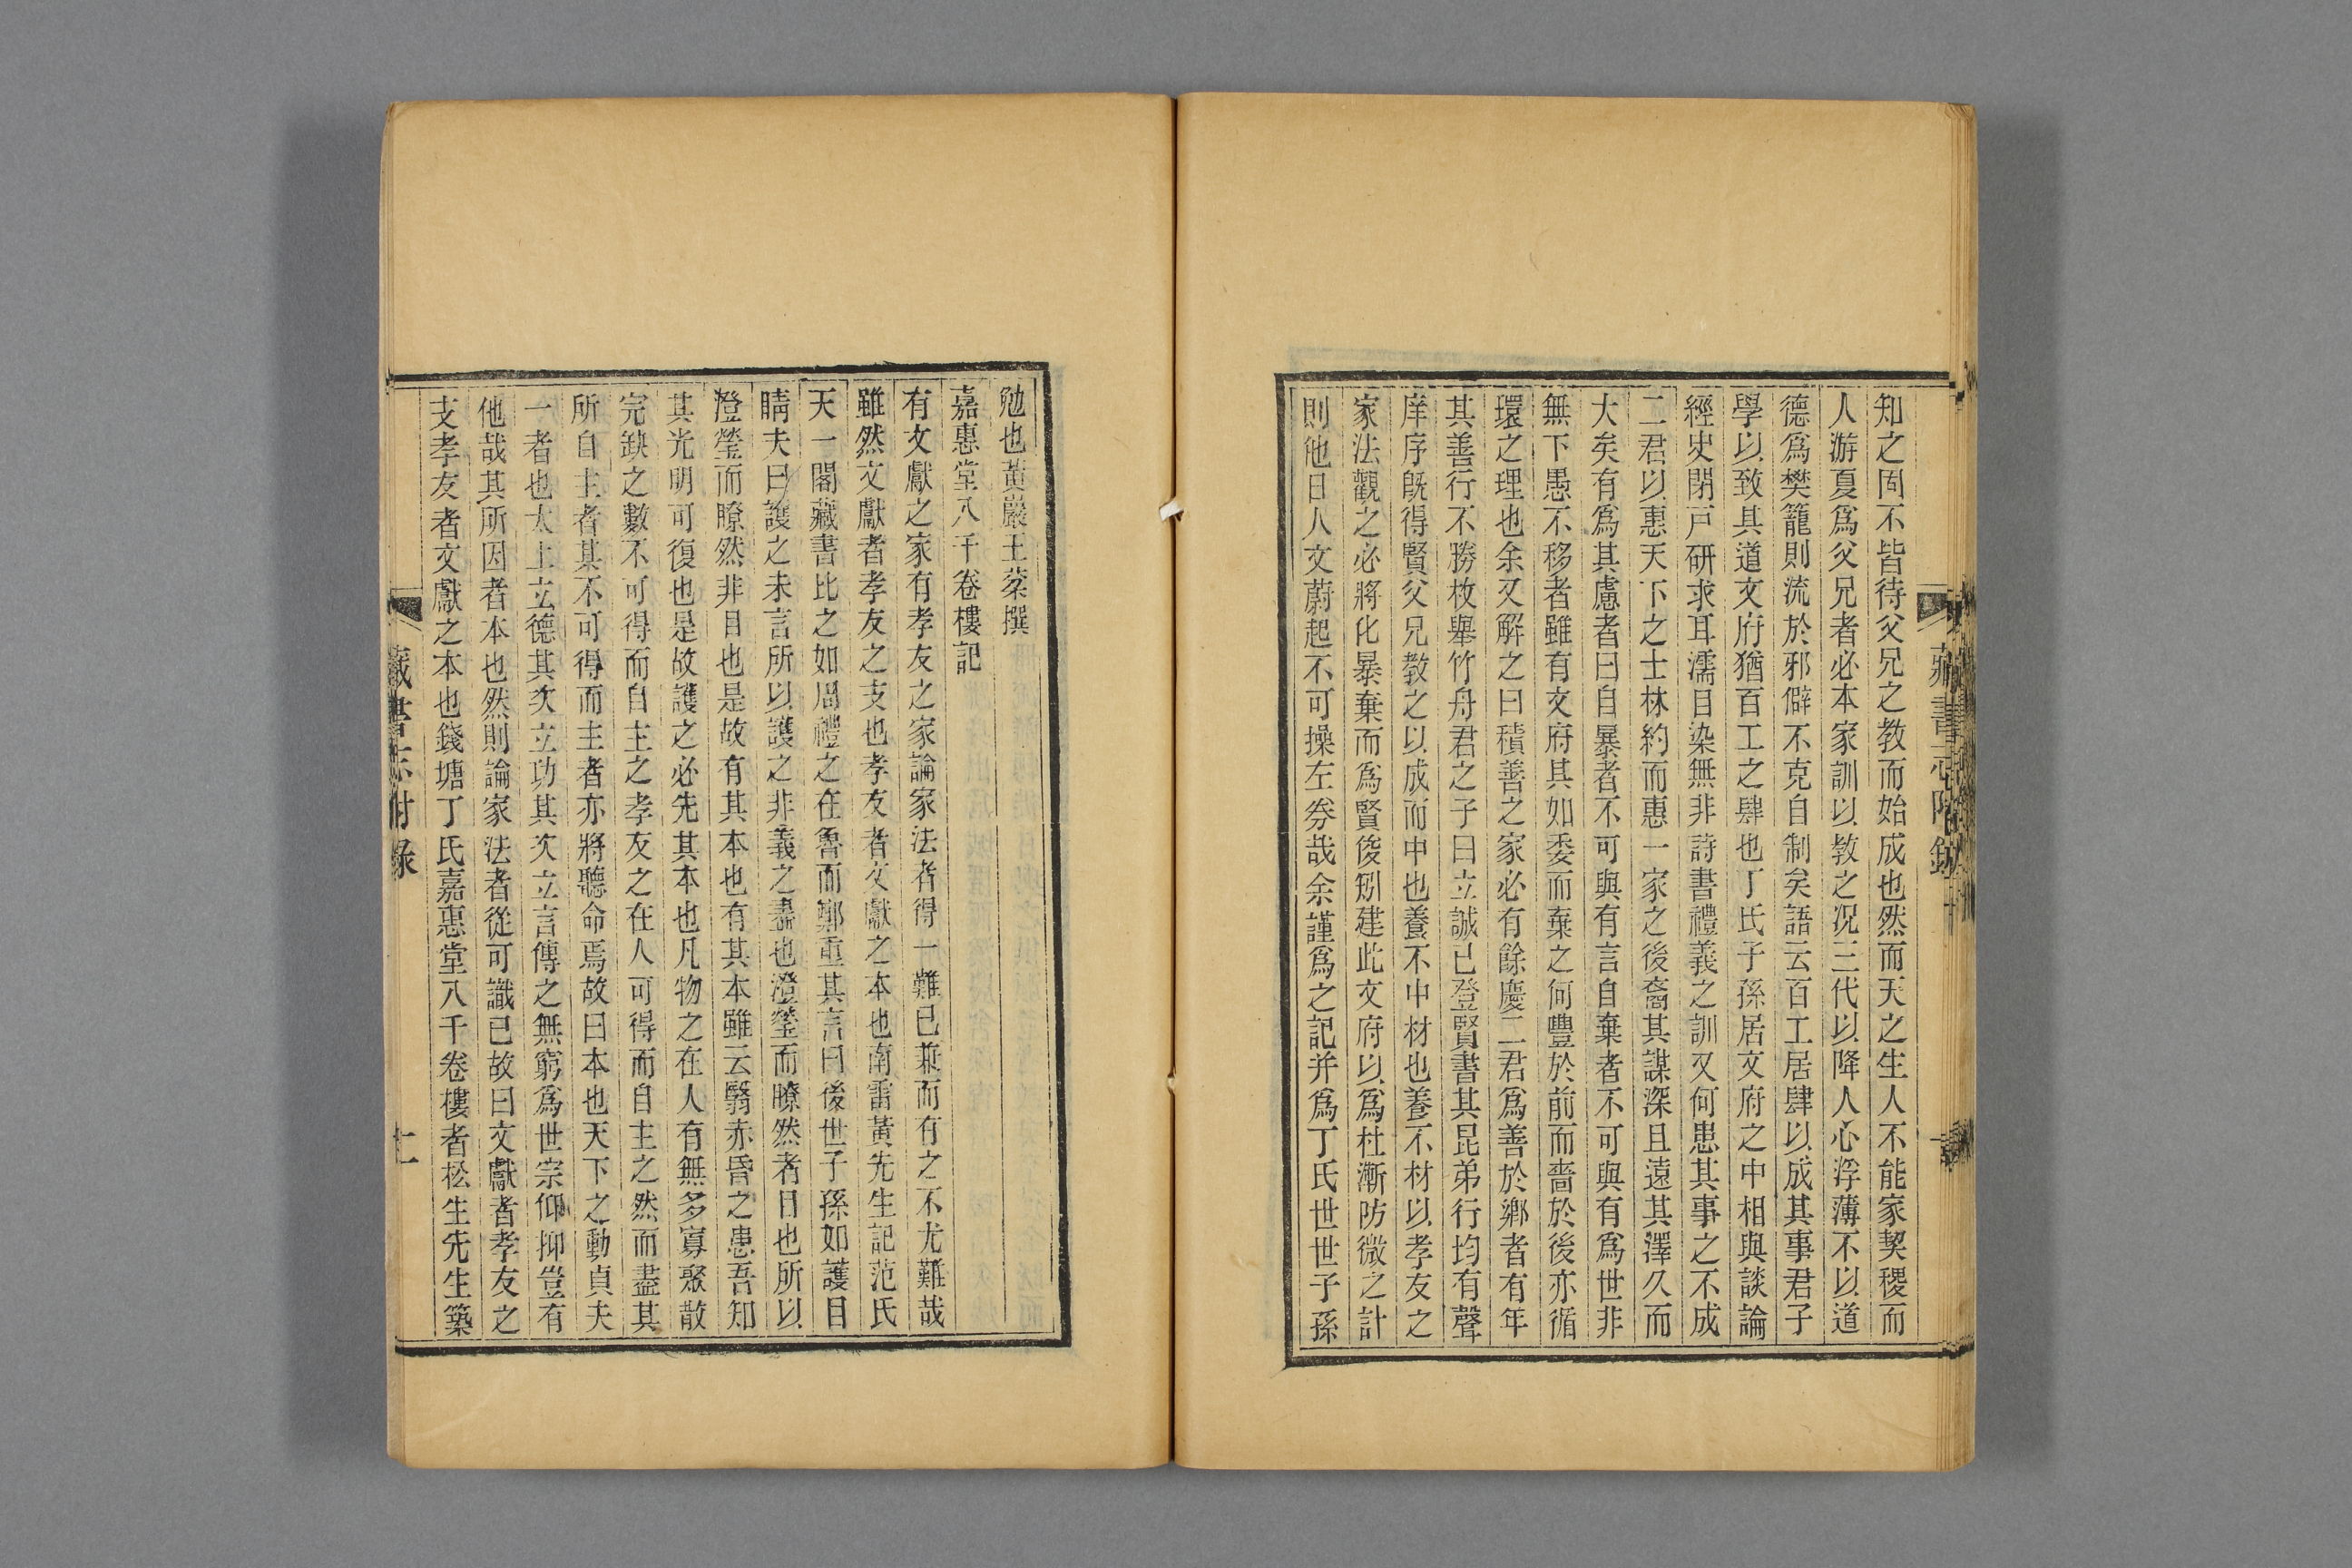 藏書志附錄
知之固不皆待父兄之教而始成也然而天之生人不能家契稷而
人游夏爲父兄者必本家訓以敎之况三代以降人心浮薄不以道
德爲樊籠則流於邪僻不克自制矣語云百工居肆以成其事君子
學以致其道文府猶百工之肆也丁氏子孫居文府之中相與談論
經史閉戸研求耳濡目染無非詩書禮義之訓又何患其事之不成
二君以惠天下之士林約而惠一家之後裔其謀深且遠其澤久而
大矣有爲其慮者曰自暴者不可與有言自棄者不可與有爲世非
無下愚不移者雖有文府其如委而棄之何豐於前而嗇於後亦循
環之理也余又解之曰積善之家必有餘慶二君爲善於鄕者有年
其善行不勝枚舉竹舟君之子曰立誠已登賢書其昆弟行均有聲
庠序旣得賢父兄教之以成而中也養不中材也養不材以孝友之
家法觀之必將化暴棄而爲賢俊矧建此文府以爲杜漸防微之計
則他日人文蔚起不可操左券哉余謹爲之記并爲丁氏世世子孫
勉也黃巖王棻撰
嘉惠堂八千卷樓記
有文獻之家有孝友之家論家法者得一難已兼而有之不尤難哉
雖然文獻者孝友之支也孝友者文獻之本也南雷黃先生記范氏
天一閣藏書比之如周禮之在魯而鄭重其言曰後世子孫如護目
睛夫曰護之未言所以護之非義之盡也澄瑩而瞭然者目也所以
澄瑩而瞭然非目也是故有其本也有其本雖云翳赤昏之患吾知
其光明可復也是故護之必先其本也凡物之在人有無多寡聚散
完缺之數不可得而自主之孝友之在人可得而自主之然而盡其
所自主者其不可得而主者亦將聽命焉故曰本也天下之動貞夫
一者也太上立德其次立功其次立言傳之無窮爲世宗仰抑豈有
他哉其所因者本也然則論家法者從可識已故曰文獻者孝友之
支孝友者文獻之本也錢塘丁氏嘉惠堂八千卷樓者松生先生築
藏書志附錄
十一